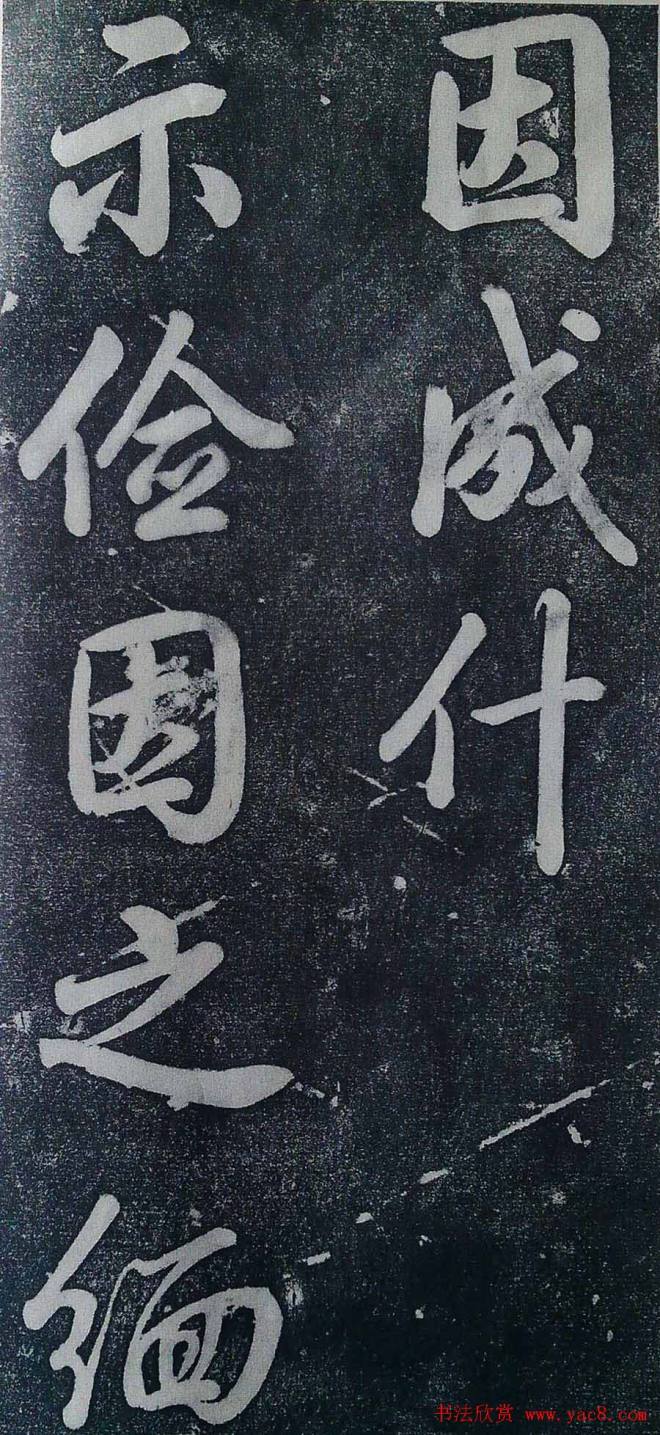 因成什
示俭因之缅
书法欣赏 www.yac8.com